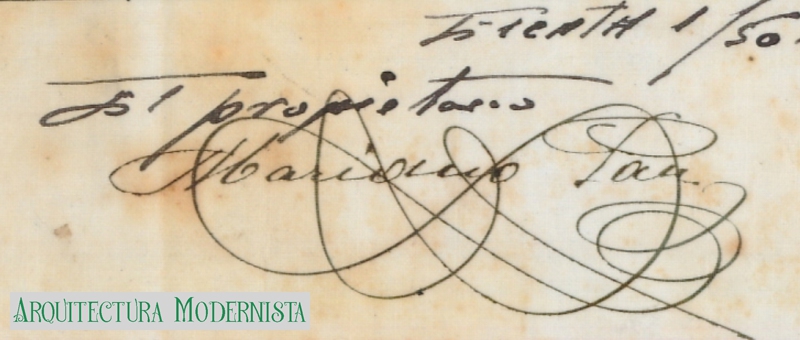 Escala 1/50
El propietario
Mariano Pau
ARQUITECTURA MODERNISTA